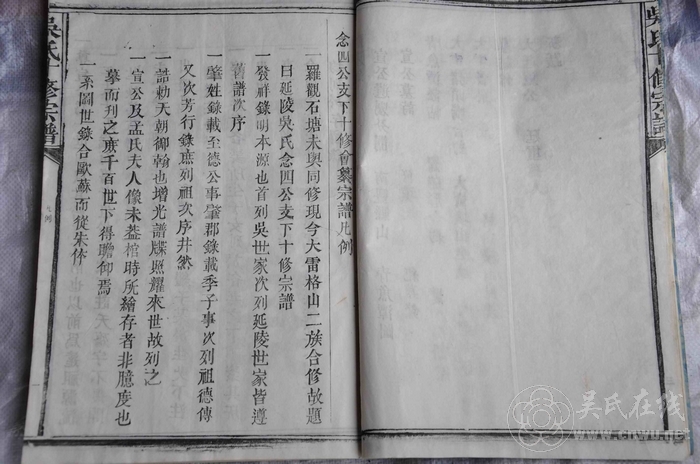 念四公支下十修會纂宗譜凡例
一羅觀石塘未與同修現今大雷格山二族合修故題
曰延陵吳氏念四公支下十修宗譜
一發祥錄明本源也首列吳世家次列延陵世家皆遵
舊譜次序
一肇姓錄載至德公事肇郡錄載季子事次列祖德傳
又次芳行錄庶列祖次序井然
一誥勅天朝御翰也增光譜牒照耀來世故列之
一宣公及孟氏夫人像未葢棺時所繪存者非臆度也
摹而刋之庶千百世下得瞻仰焉
一系圖世錄合歐蘇而從朱体
吳氏十修宗譜
凡例
吳氏十修宗譜
吴氏在线
www.cnwu.net